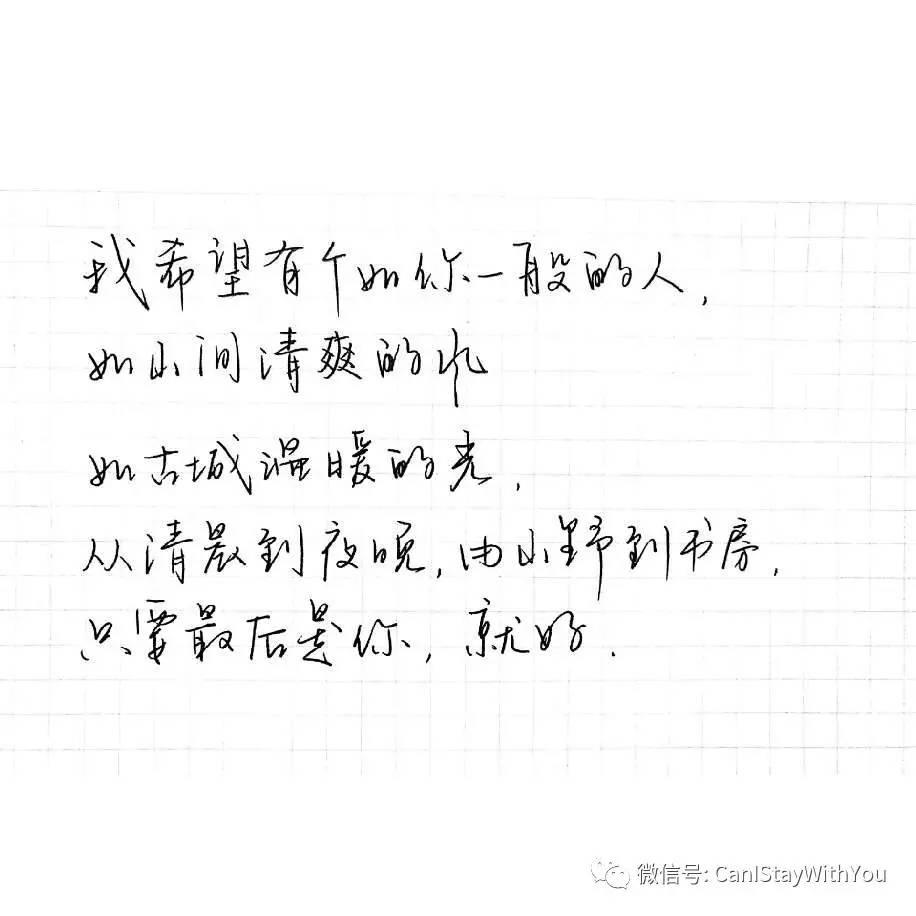 我希望有个如你一般的人,
如山间清爽的
如古城温暖的光,
从清晨到夜晚,由山野到书房,
只要最后是你,就好.
微信号: CanIStayWithYou